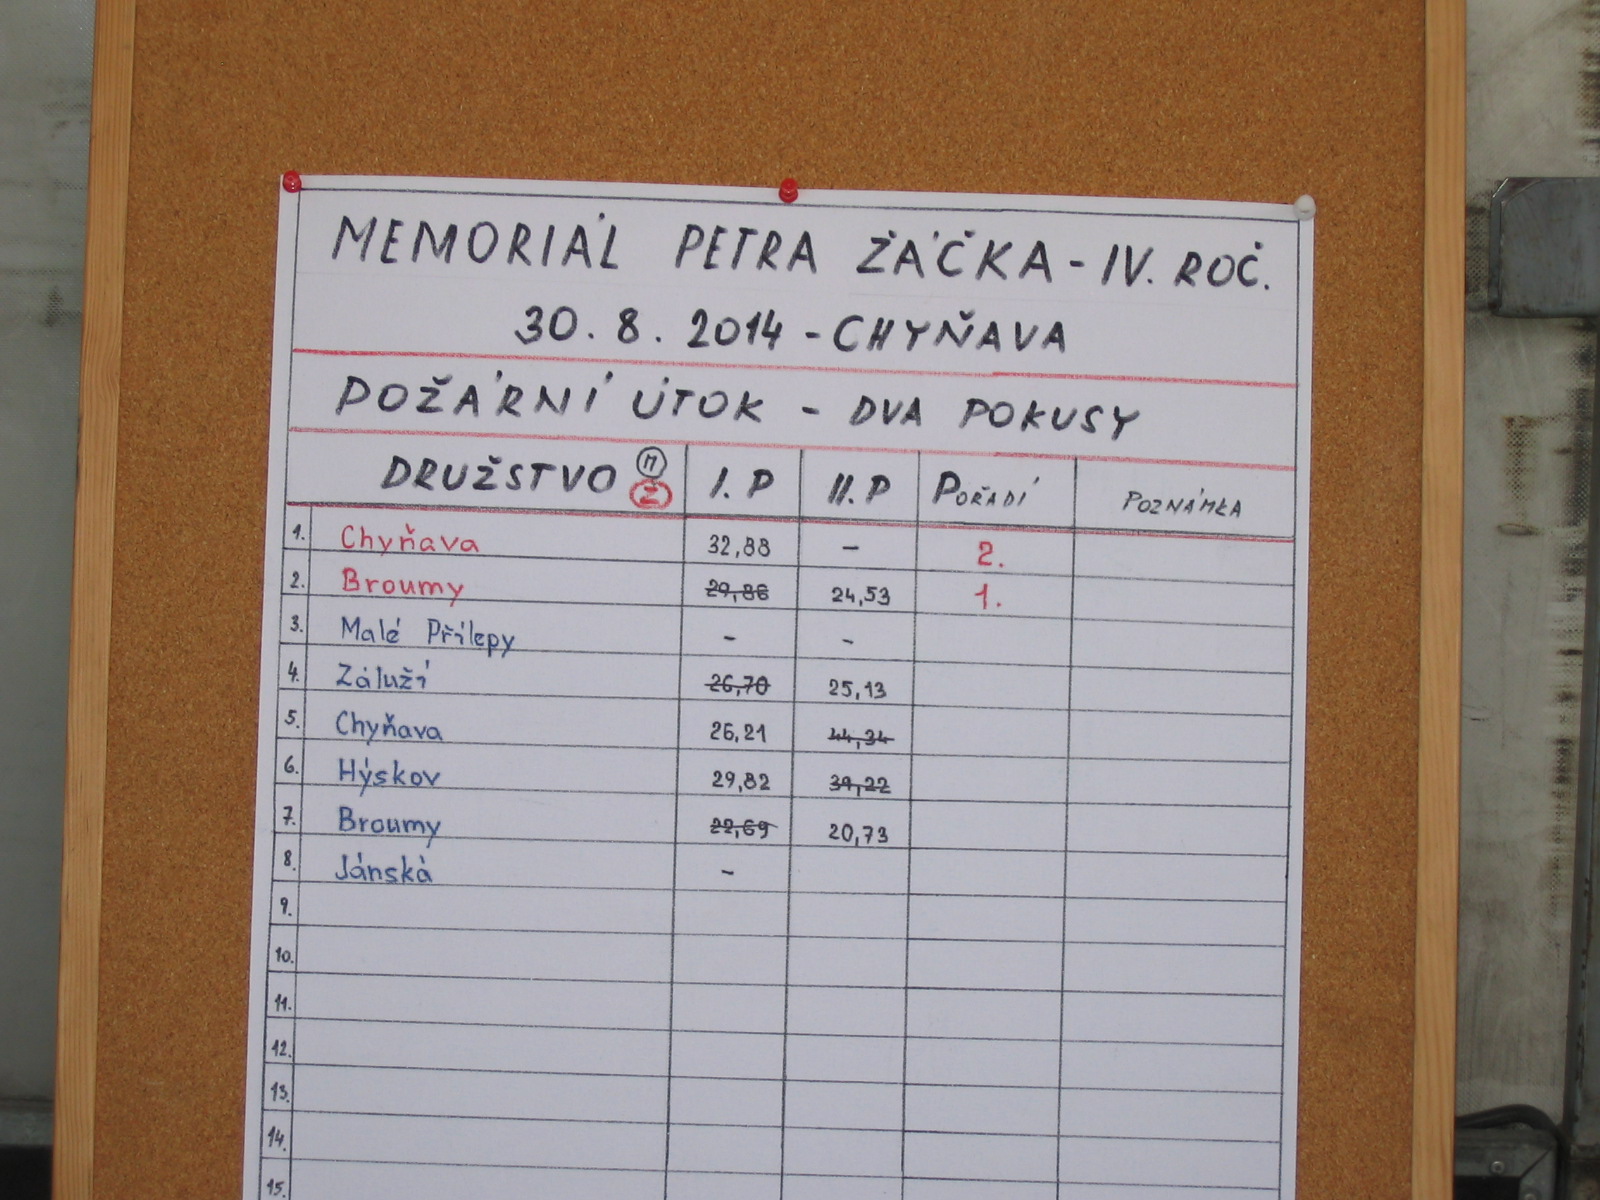 MEMORIÁL PETRA ŽÁČKA - IV. ROČ.
30. 8. 2014 - CHYŇAVA
POŽÁRNÍ ÚTOK - DVA POKUSY
DRUŽSTVO M Ž I. P II. P POŘADÍ POZNÁMKA
1. Chyňava 32,88 - 2.
2. Broumy 29,86 24,53 1.
3. Malé Přílepy - -
4. Záluží 26,70 25,13
5. Chyňava 26,21 44,34
6. Hýskov 29,82 39,22
7. Broumy 22,69 20,73
8. Jánská -
9.
10.
11.
12.
13.
14.
15.